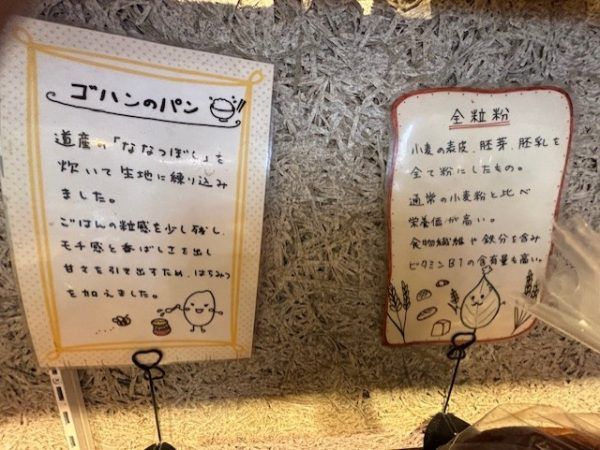 ゴハンのパン
道産の「ななつぼし」を
炊いて生地に練り込み
ました。
ごはんの粒感を少し残し、
モチ感と香ばしさを出し
甘さを引き出すため、はちみつ
を加えました。
全粒粉
小麦の表皮、胚芽、胚乳を
全て粉にしたもの。
通常の小麦粉と比べ
栄養価が高い。
食物繊維や鉄分を含み
ビタミンB1の含有量も高い。